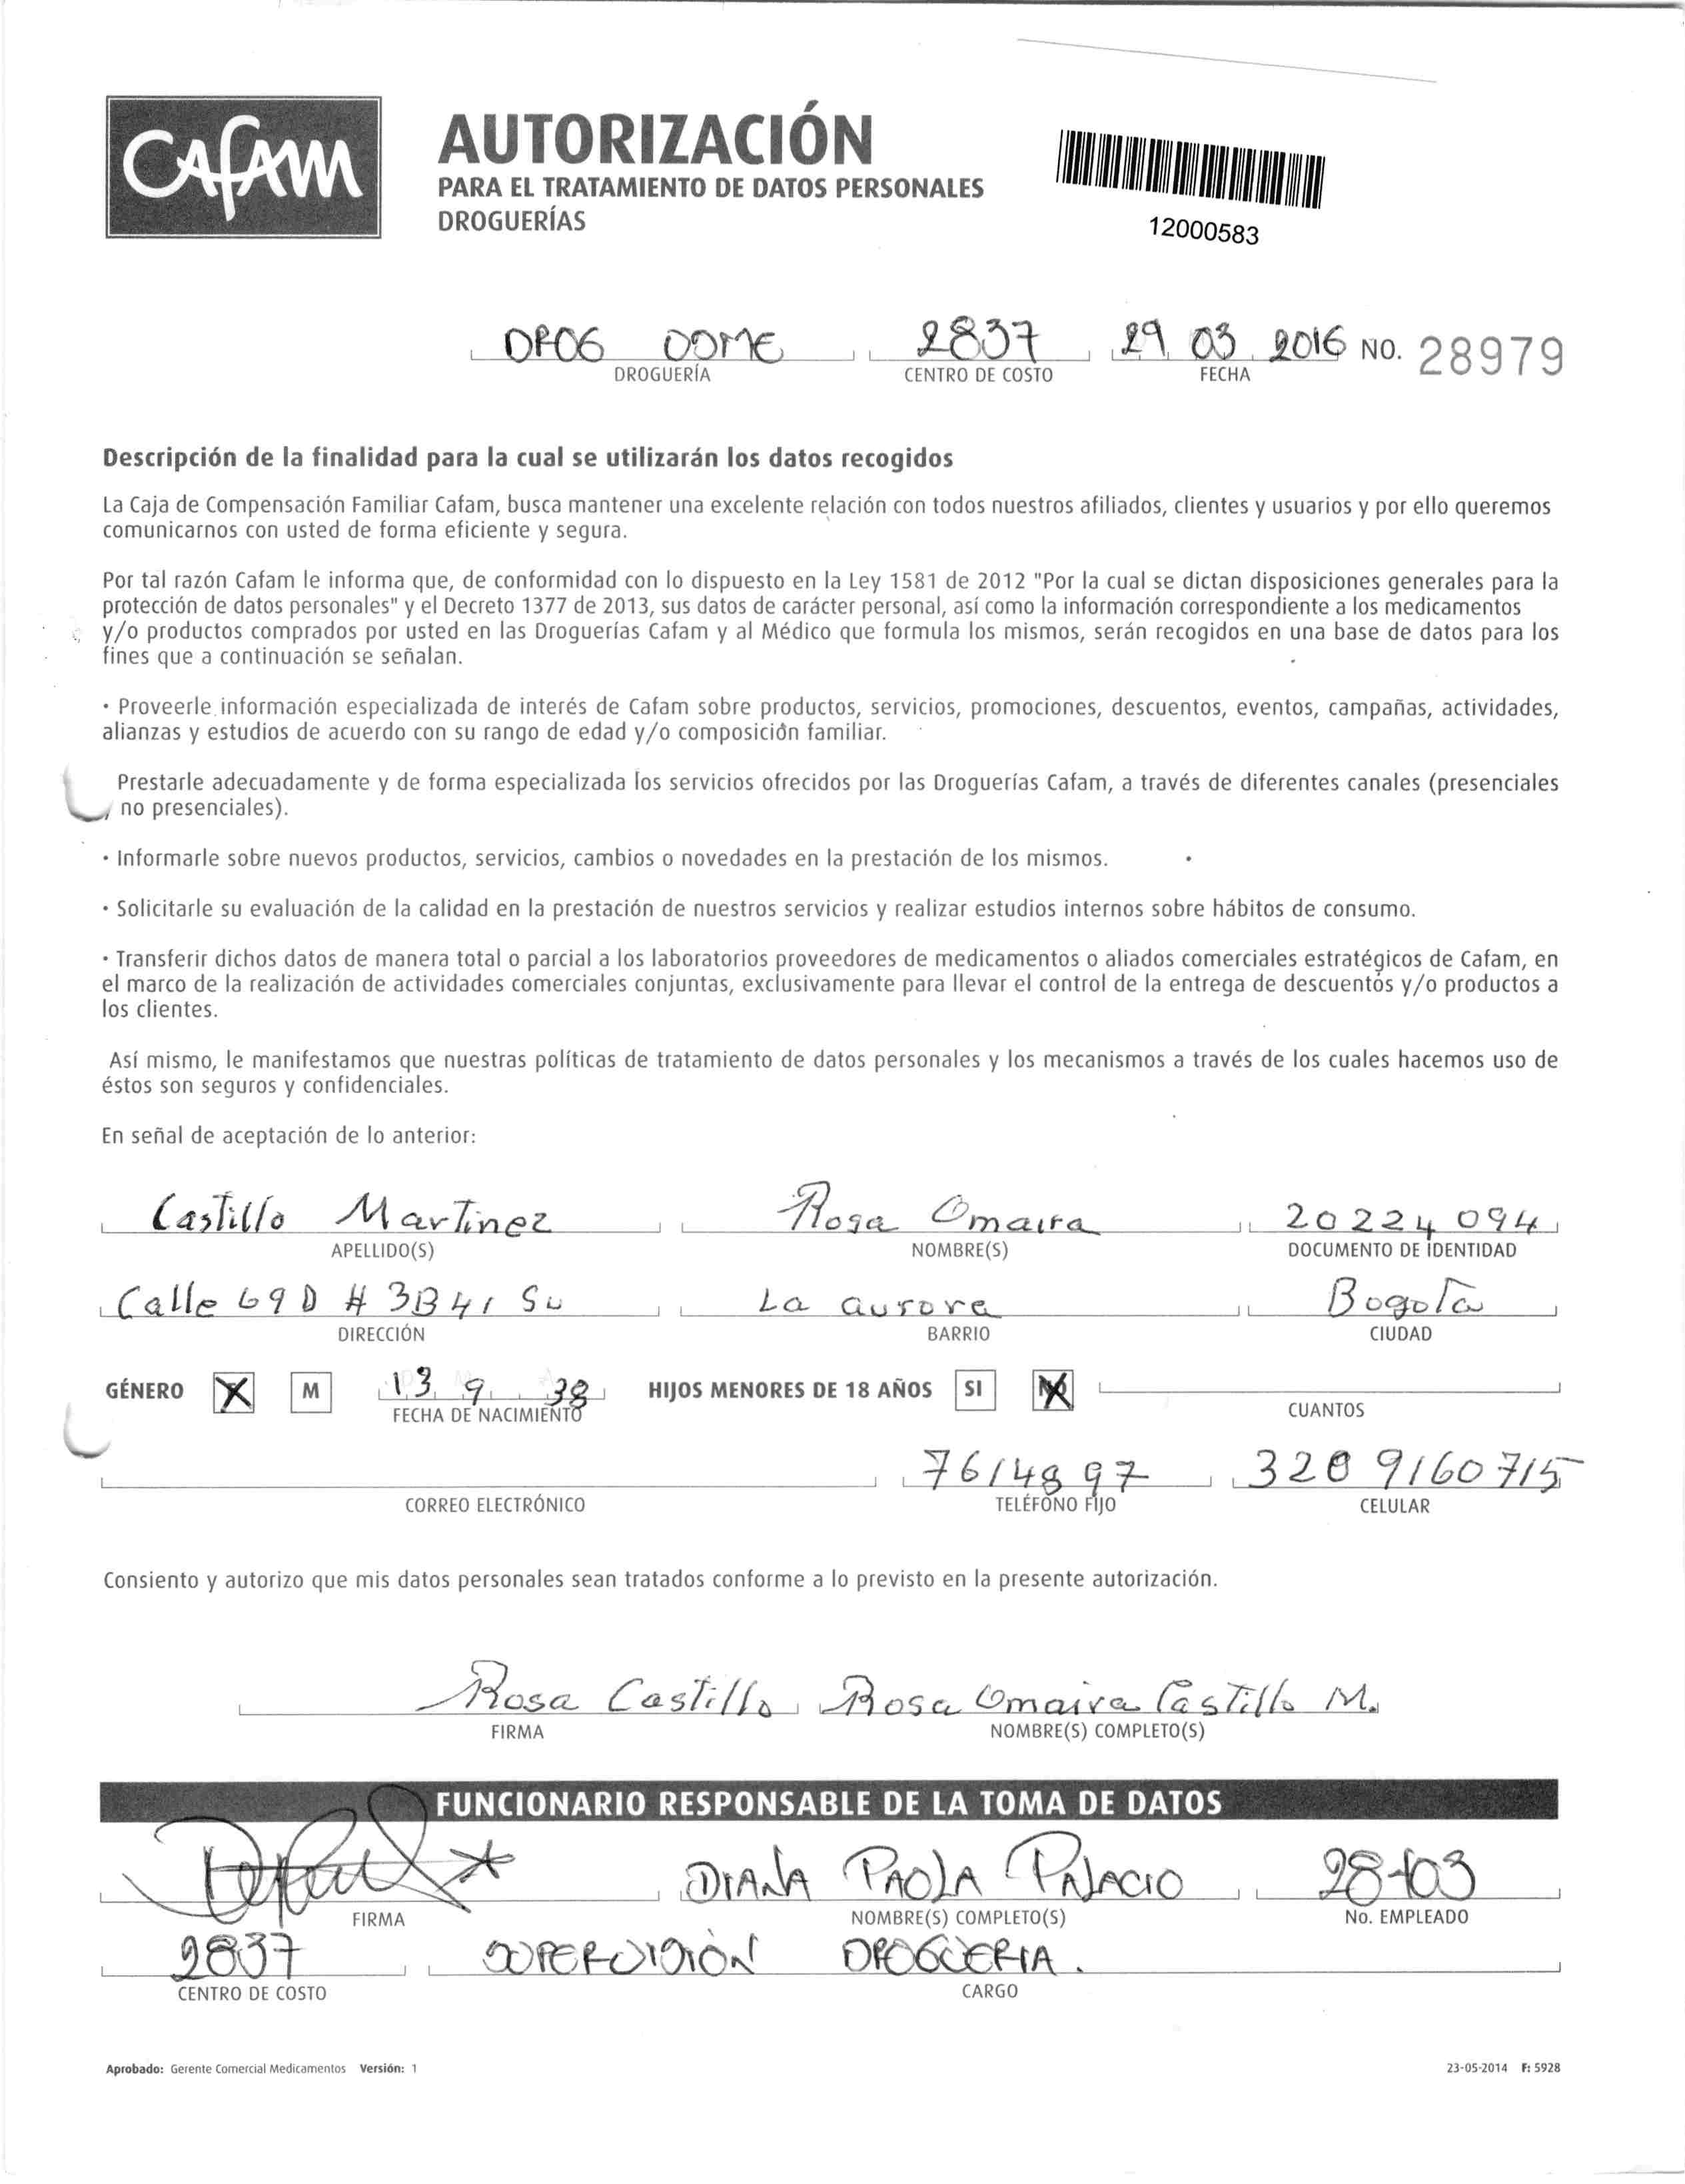 CAFAM
AUTORIZACIÓN
PARA EL TRATAMIENTO DE DATOS PERSONALES
DROGUERÍAS
12000583
DROG DOME 2837 29 03 2016 NO. 28979
DROGUERÍA CENTRO DE COSTO FECHA
Descripción de la finalidad para la cual se utilizarán los datos recogidos
La Caja de Compensación Familiar Cafam, busca mantener una excelente relación con todos nuestros afiliados, clientes y usuarios y por ello queremos
comunicarnos con usted de forma eficiente y segura.
Por tal razón Cafam le informa que, de conformidad con lo dispuesto en la Ley 1581 de 2012 "Por la cual se dictan disposiciones generales para la
protección de datos personales" y el Decreto 1377 de 2013, sus datos de carácter personal, así como la información correspondiente a los medicamentos
y/o productos comprados por usted en las Droguerías Cafam y al Médico que formula los mismos, serán recogidos en una base de datos para los
fines que a continuación se señalan.
· Proveerle información especializada de interés de Cafam sobre productos, servicios, promociones, descuentos, eventos, campañas, actividades,
alianzas y estudios de acuerdo con su rango de edad y/o composición familiar.
Prestarle adecuadamente y de forma especializada los servicios ofrecidos por las Droguerías Cafam, a través de diferentes canales (presenciales
no presenciales).
· Informarle sobre nuevos productos, servicios, cambios o novedades en la prestación de los mismos.
· Solicitarle su evaluación de la calidad en la prestación de nuestros servicios y realizar estudios internos sobre hábitos de consumo.
· Transferir dichos datos de manera total o parcial a los laboratorios proveedores de medicamentos o aliados comerciales estratégicos de Cafam, en
el marco de la realización de actividades comerciales conjuntas, exclusivamente para llevar el control de la entrega de descuentos y/o productos a
los clientes.
Así mismo, le manifestamos que nuestras políticas de tratamiento de datos personales y los mecanismos a través de los cuales hacemos uso de
éstos son seguros y confidenciales.
En señal de aceptación de lo anterior:
Castillo Martinez Rosa Omaira 20224094
APELLIDO(S) NOMBRE(S) DOCUMENTO DE IDENTIDAD
Calle 69 D # 3B 41 Su La aurora Bogota
DIRECCIÓN BARRIO CIUDAD
GÉNERO X M 13 9 38 HIJOS MENORES DE 18 AÑOS SI NO
FECHA DE NACIMIENTO CUANTOS
7614897 320 9160715
CORREO ELECTRÓNICO TELÉFONO FIJO CELULAR
Consiento y autorizo que mis datos personales sean tratados conforme a lo previsto en la presente autorización.
Rosa Castillo Rosa Omaira Castillo M.
FIRMA NOMBRE(S) COMPLETO(S)
FUNCIONARIO RESPONSABLE DE LA TOMA DE DATOS
DIANA PAOLA PALACIO 28403
FIRMA NOMBRE(S) COMPLETO(S) No. EMPLEADO
2837 SUPERVISIÓN DROGUERIA.
CENTRO DE COSTO CARGO
Aprobado: Gerente Comercial Medicamentos Versión: 1 23-05-2014 F: 5928